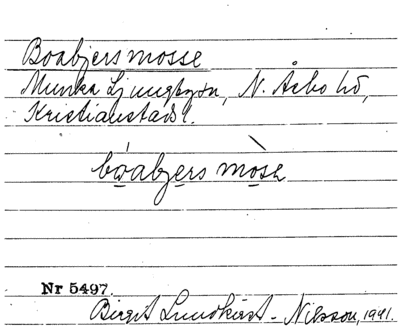 Boabjersmosse
Munka Ljungbysn, N. Åsbo hd,
Kristianstads l.
bo̤abjers mo̤sε
Nr 5497.
Birgit Lundkvist-Nilsson, 1941.